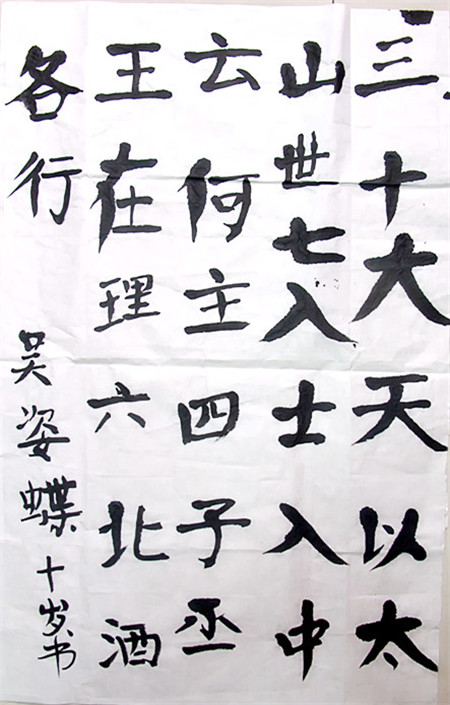 三十大天以太
山世七入士入中
云何主四子丕
王在理六北酒
各行
吴姿蝶十岁书